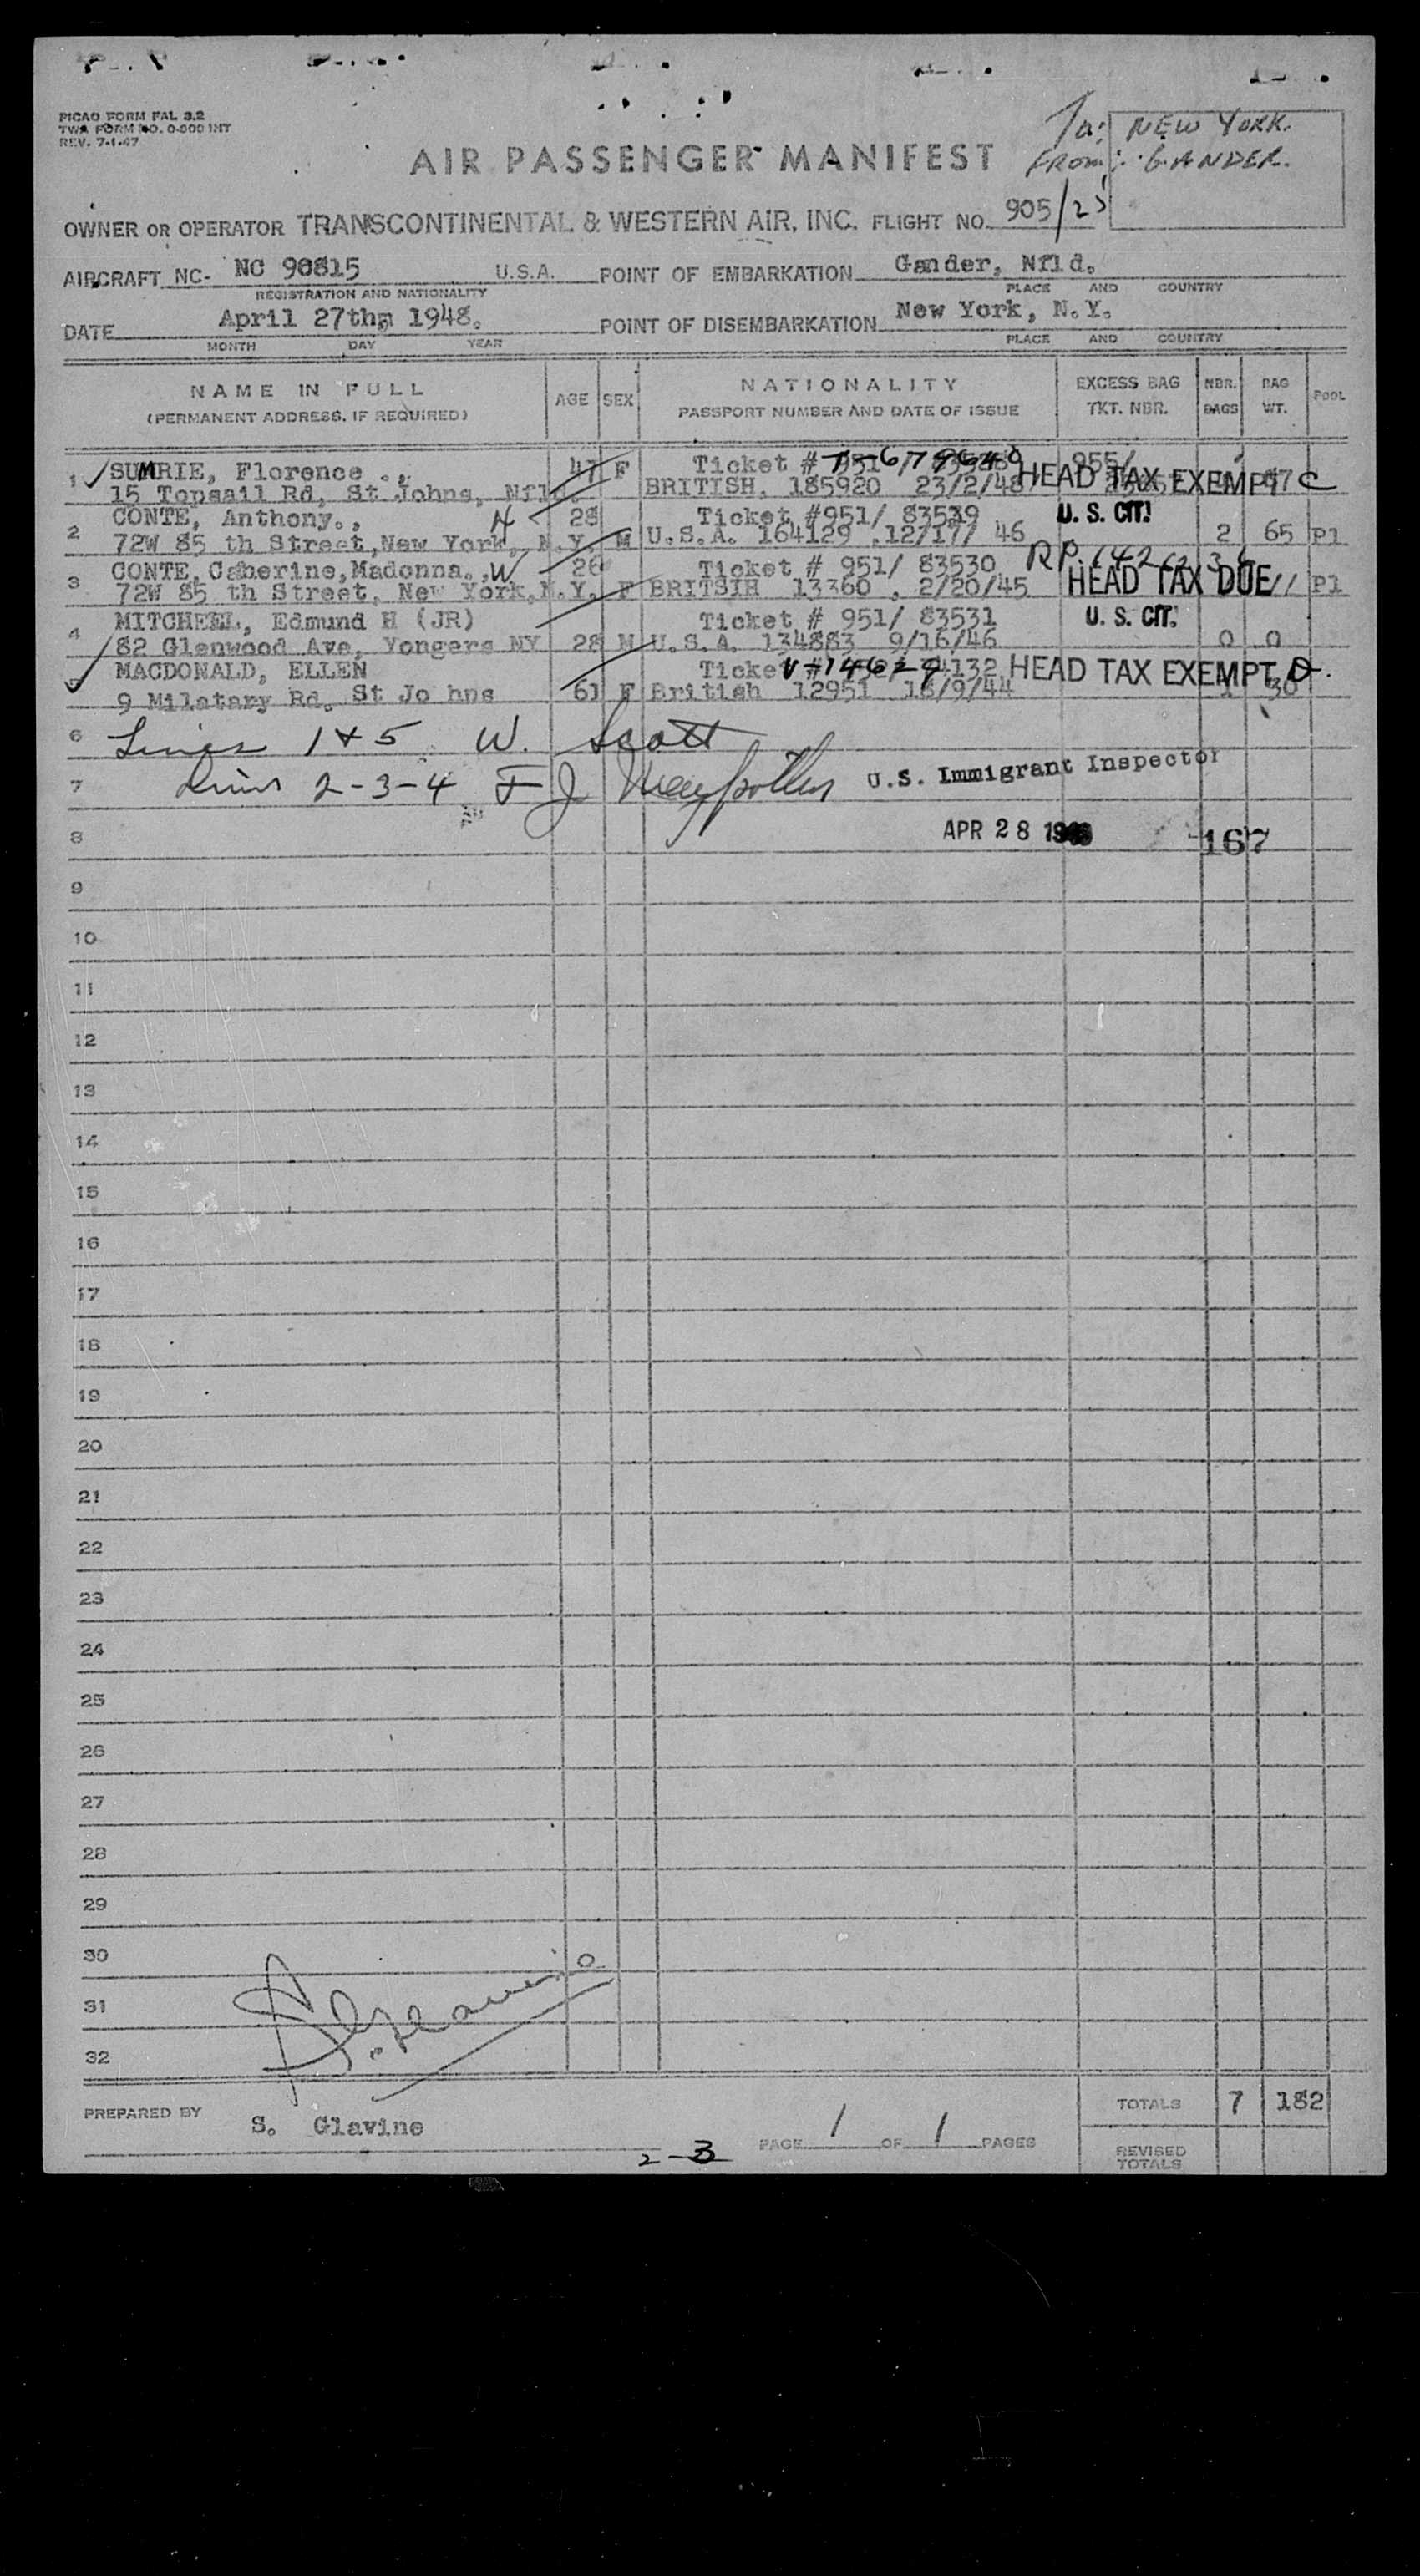 PICAO FORM FAL 3.2
TWA FORM NO. 0-900 INT
REV. 7-1-47
To: NEW YORK.
FROM: GANDER.
AIR PASSENGER MANIFEST
OWNER OR OPERATOR TRANSCONTINENTAL & WESTERN AIR, INC. FLIGHT NO. 905/25
AIRCRAFT NC- NC 90815 U.S.A. POINT OF EMBARKATION Gander, Nfld.
REGISTRATION AND NATIONALITY PLACE AND COUNTRY
DATE April 27th, 1948. POINT OF DISEMBARKATION New York, N.Y.
MONTH DAY YEAR PLACE AND COUNTRY
NAME IN FULL AGE SEX NATIONALITY EXCESS BAG NBR. BAG POOL
(PERMANENT ADDRESS, IF REQUIRED) PASSPORT NUMBER AND DATE OF ISSUE TKT. NBR. BAGS WT.
1 SUMRIE, Florence ., 47 F Ticket # 955/
15 Topsail Rd, St Johns, Nfld. BRITISH. 185920 23/2/48 HEAD TAX EXEMPT C
2 CONTE, Anthony., H 28 Ticket #951/ 83539 U. S. CIT.
72W 85 th Street,New York, N.Y. M U.S.A. 164129 .12/17/ 46 2 65 Pl
3 CONTE, Catherine,Madonna., W 26 Ticket # 951/ 83530 RP
72W 85 th Street, New York,N.Y. F BRITSIH 13360 , 2/20/45 HEAD TAX DUE // Pl
4 MITCHELL, Edmund H (JR) Ticket # 951/ 83531 U. S. CIT.
82 Glenwood Ave, Yongers NY 28 M U.S.A. 134883 9/16/46 0 0
5 MACDONALD, ELLEN Ticket HEAD TAX EXEMPT D.
9 Milatary Rd. St Jo hns 61 F British 12951 18/9/44 1 30
6 Lines 1 & 5 W. Scott
7 Lines 2-3-4 F J U.S. Immigrant Inspector
8 APR 28 1948 167
9
10
11
12
13
14
15
16
17
18
19
20
21
22
23
24
25
26
27
28
29
30
31 S. Glavine
32
PREPARED BY S. Glavine PAGE 1 OF 1 PAGES TOTALS 7 182
2-3 REVISED TOTALS